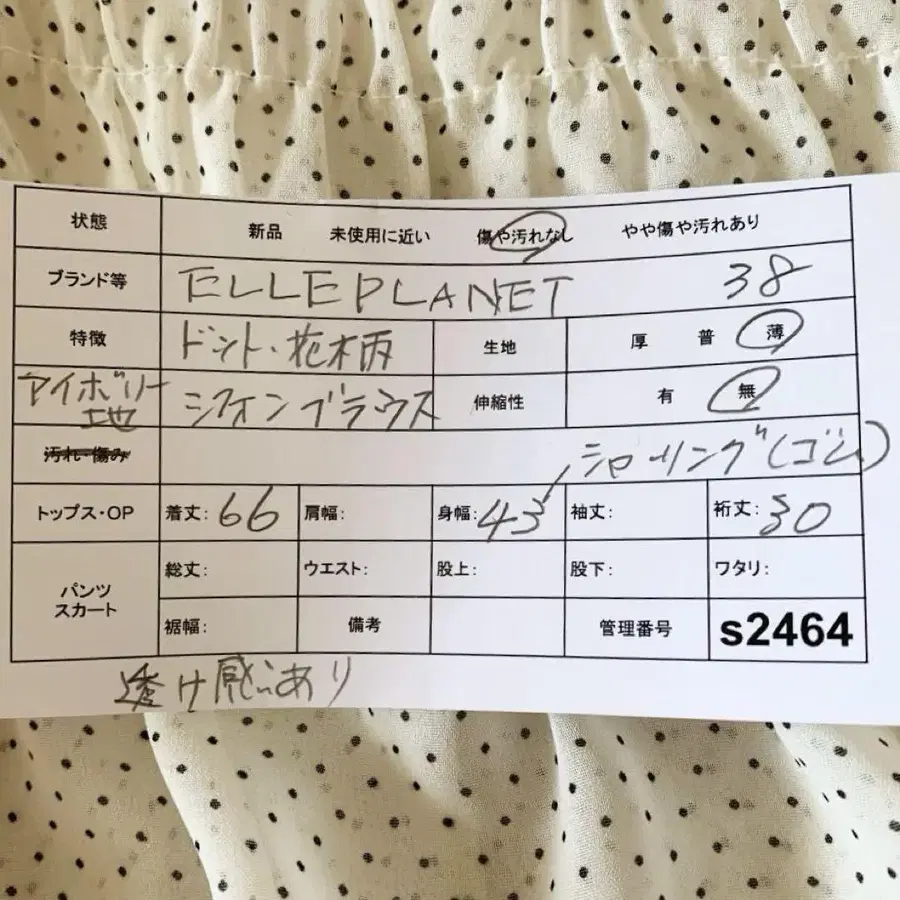 状態 新品 未使用に近い 傷や汚れなし やや傷や汚れあり
ブランド等 ELLE PLANET 38
特徴 ドット・花木柄 生地 厚 普 薄
アイボリー地 シフォンブラウス 伸縮性 有 無
汚れ・傷み シャーリング(ゴム)
トップス・OP 着丈: 66 肩幅: 身幅: 43 袖丈: 裄丈: 30
パンツ スカート 総丈: ウエスト: 股上: 股下: ワタリ:
裾幅: 備考 管理番号 s2464
透け感あり